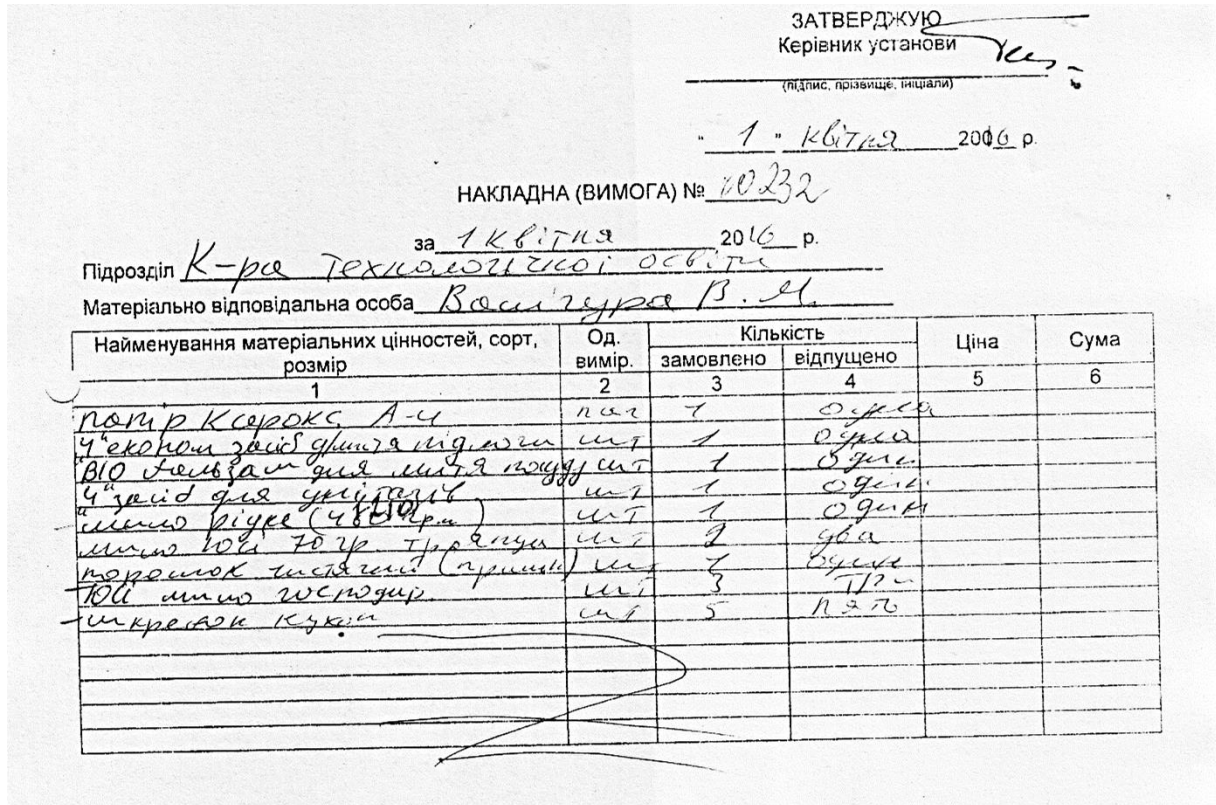 ЗАТВЕРДЖУЮ
Керівник установи
(підпис, прізвище, ініціали)
" 1 " квітня 2016 р.
НАКЛАДНА (ВИМОГА) №
за 1 квітня 2016 р.
Підрозділ К-ра технологічної освіти
Матеріально відповідальна особа В. М.
Найменування матеріальних цінностей, сорт, розмір Од. вимір. Кількість Ціна Сума
замовлено відпущено
1 2 3 4 5 6
папір Ксерокс А-4 пач 1 одна
економ засіб підлоги шт 1 одна
ВІО бальзам для миття посуду шт 1 один
засіб для унітазів шт 1 один
мило рідке шт 1 один
мило 70 гр. шт 2 два
порошок чистячий шт 1 один
мило господар шт 3 три
шкребок кухон шт 5 пять